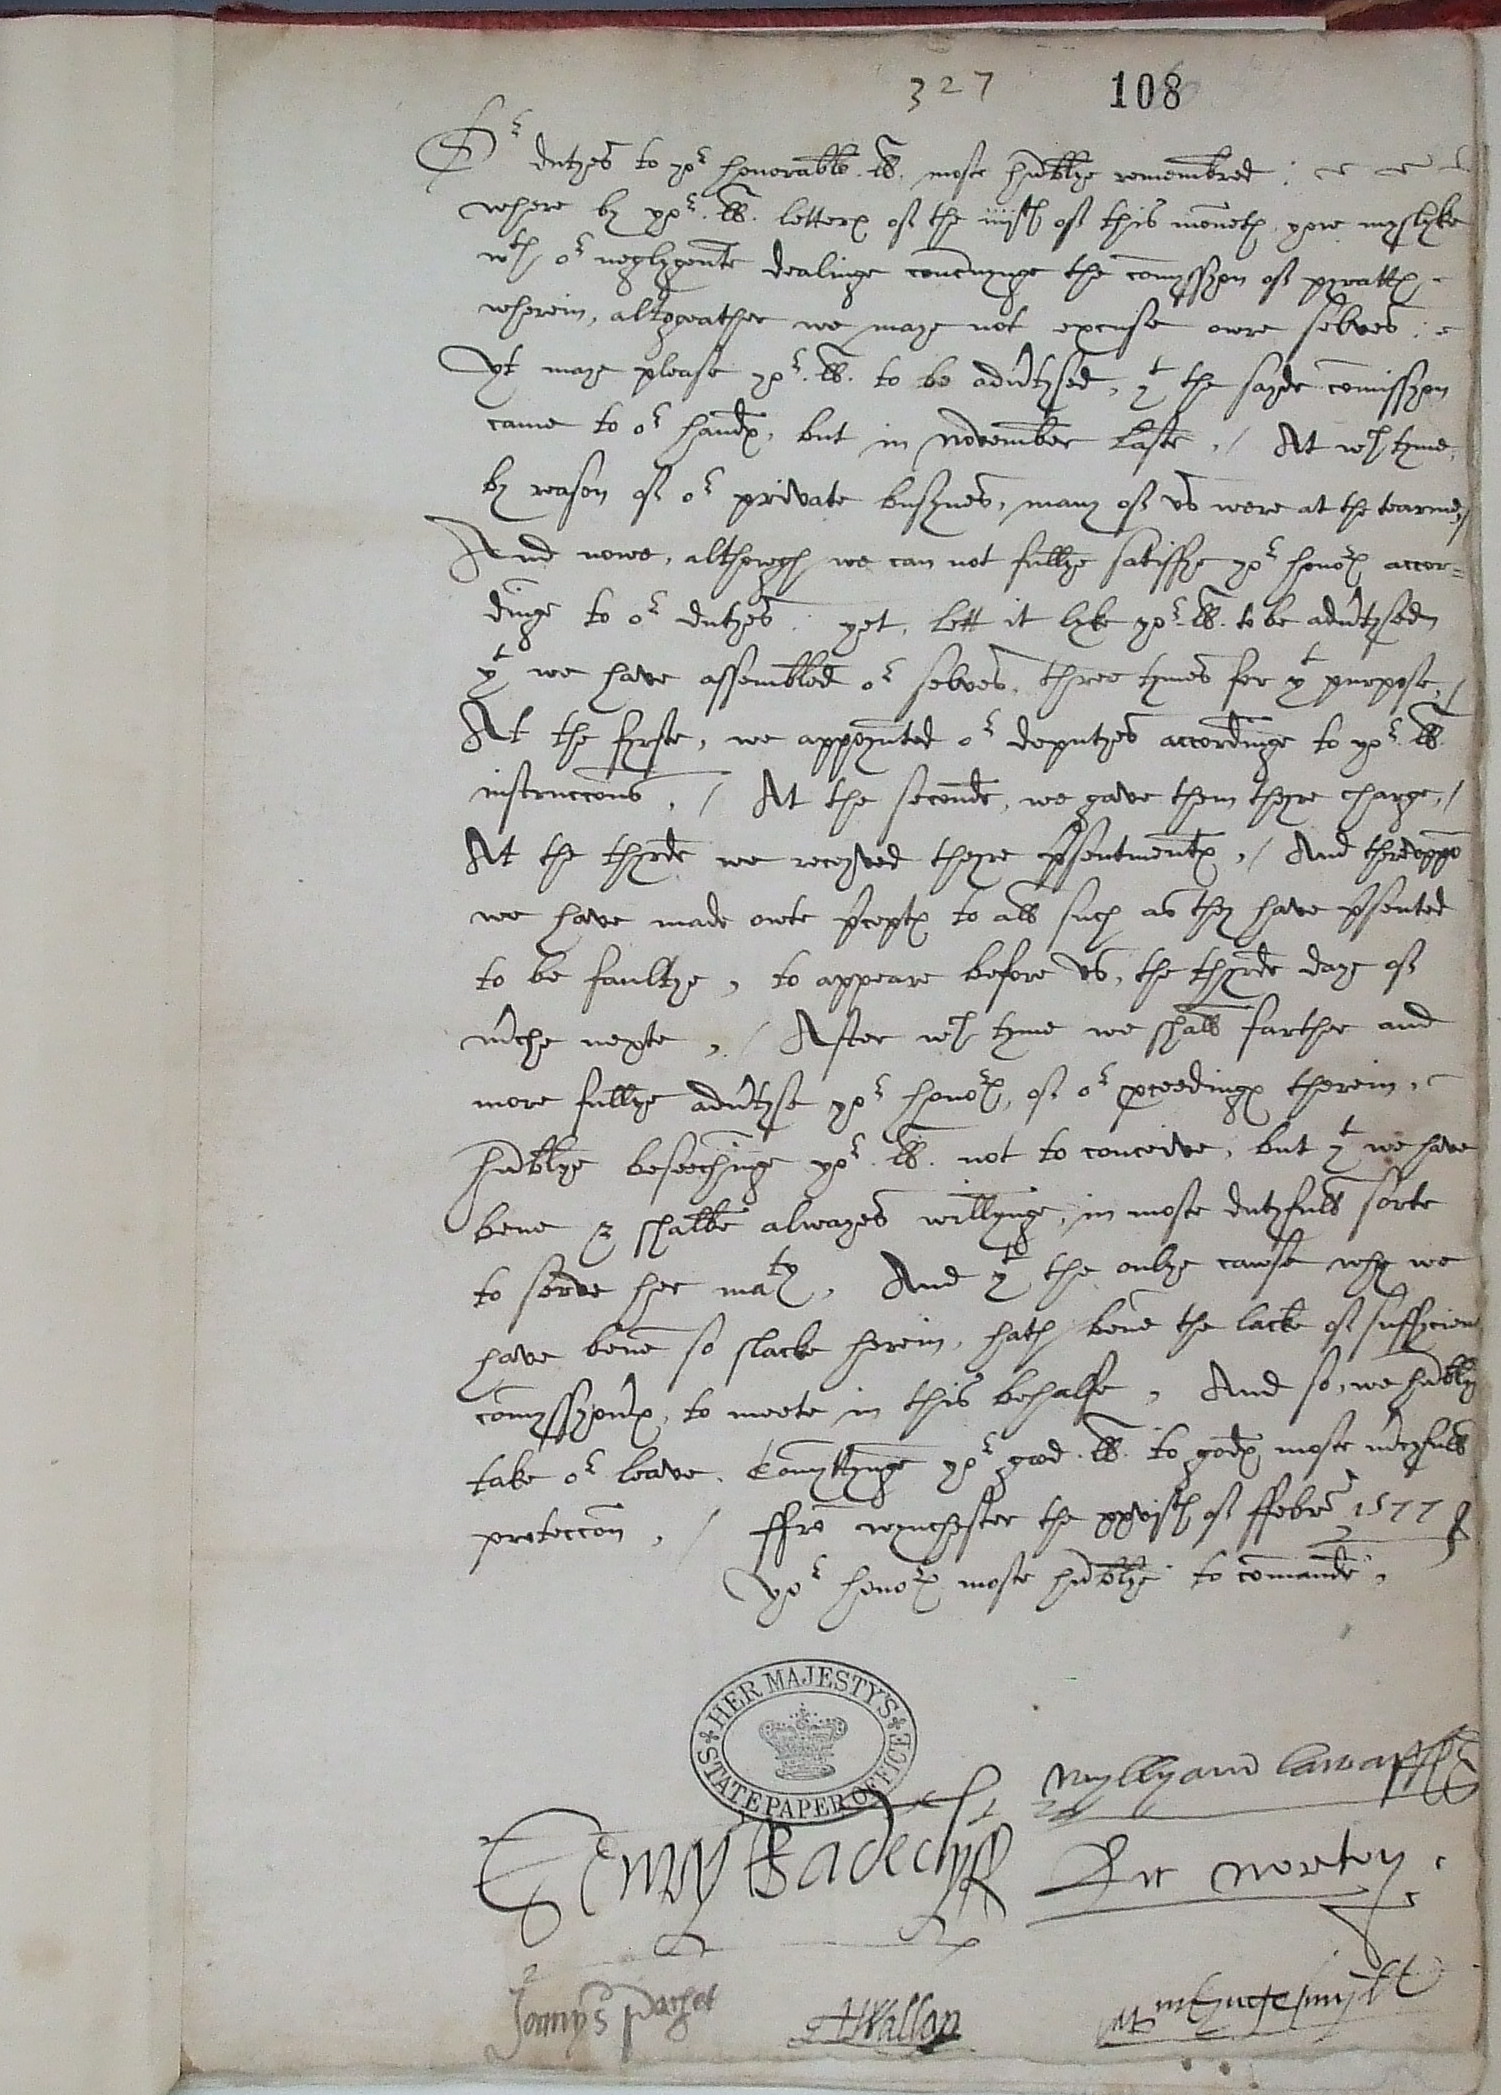 327 108
Or dutyes to yor honorable .ll. moste humblye remembred :
where by yor .ll. letters of the iiiith of this moneth, yowe myslyke
wth or neglygente dealinge concernynge the comyssyon of pyratts,
wherein, altogeather we maye not excuse owre selves :
Yt maye please yor .ll. to be advertysed, yt the sayde comissyon
came to or hands, but in November laste, / At wch tyme,
by reason of or private busynes, many of us were at the tearme, /
And nowe, althowgh we can not fullye satisfye yor honors accor=
dinge to or dutyes. yet, lett it lyke yor .ll. to be advertysed
yt we have assembled or selves, three tymes for yt purpose, /
At the fyrste, we appoynted or deputyes accordinge to yor .ll.
instruccons, / At the seconde, we gave them theyre charge, /
At the thyrde we receyved theyre psentments, / And thereuppon
we have made owte pcepts to all such as they have psented
to be faultye, to appeare before us, the thyrde daye of
mche nexte, / After wch tyme we shall farther and
more fullye advertyse yor honors, of or pceedings therein,
humblye beseechinge yor .ll. not to conceive, but yt we have
bene & shalbe alwayes willynge, in moste dutyfull sorte
to serve her maty, And yt the onlye cause why we
have bene so slacke herein, hath bene the lacke of suffycient
comyssyoners, to meete in this behalfe, And so, we humbly
take or leave. Comyttynge yor good .ll. to gods moste mercyfull
proteccon, / ffrom wynchester the xxvith of ffebr. 1577
Yor honors moste humblye to comande,
HER MAJESTY'S STATE PAPER OFFICE
Wyllyam
Henry Radeclyff Ric Norton
Jamys Paget Wallop